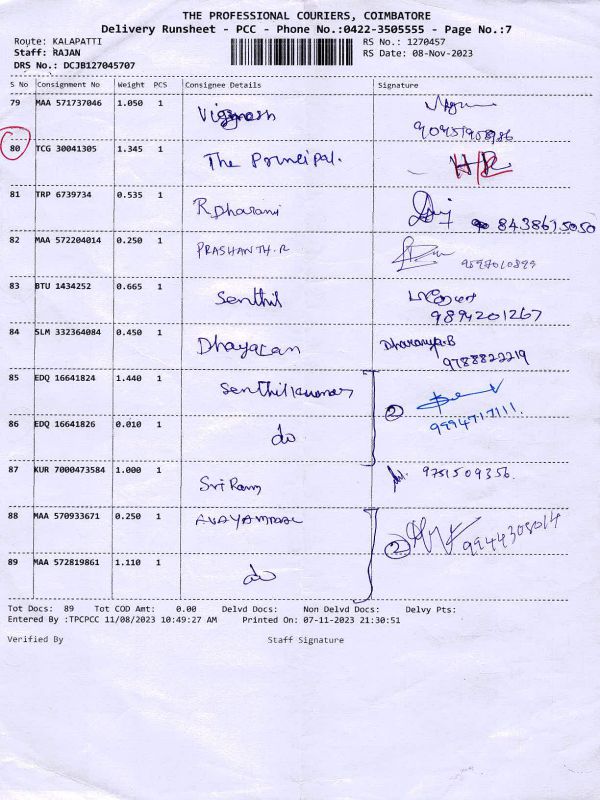 THE PROFESSIONAL COURIERS, COIMBATORE
Delivery Runsheet - PCC - Phone No.:0422-3505555 - Page No.:7
Route: KALAPATTI RS No.: 1270457
Staff: RAJAN RS Date: 08-Nov-2023
DRS No.: DCJB127045707
S No Consignment No Weight PCS Consignee Details Signature
79 MAA 571737046 1.050 1 Vignesh
80 TCG 30041305 1.345 1 The Principal.
81 TRP 6739734 0.535 1 R Dharani 8438615050
82 MAA 572204014 0.250 1 PRASHANTH.R
83 BTU 1434252 0.665 1 Senthil
9894201267
84 SLM 332364084 0.450 1 Dhayalan Dharanya.B
9788822219
85 EDQ 16641824 1.440 1 Senthilkumar
2 9994717111.
86 EDQ 16641826 0.010 1 do
87 KUR 7000473584 1.000 1 Sri Ram 9751509356
88 MAA 570933671 0.250 1
2 9944308014
89 MAA 572819861 1.110 1 do
Tot Docs: 89 Tot COD Amt: 0.00 Delvd Docs: Non Delvd Docs: Delvy Pts:
Entered By :TPCPCC 11/08/2023 10:49:27 AM Printed On: 07-11-2023 21:30:51
Verified By Staff Signature